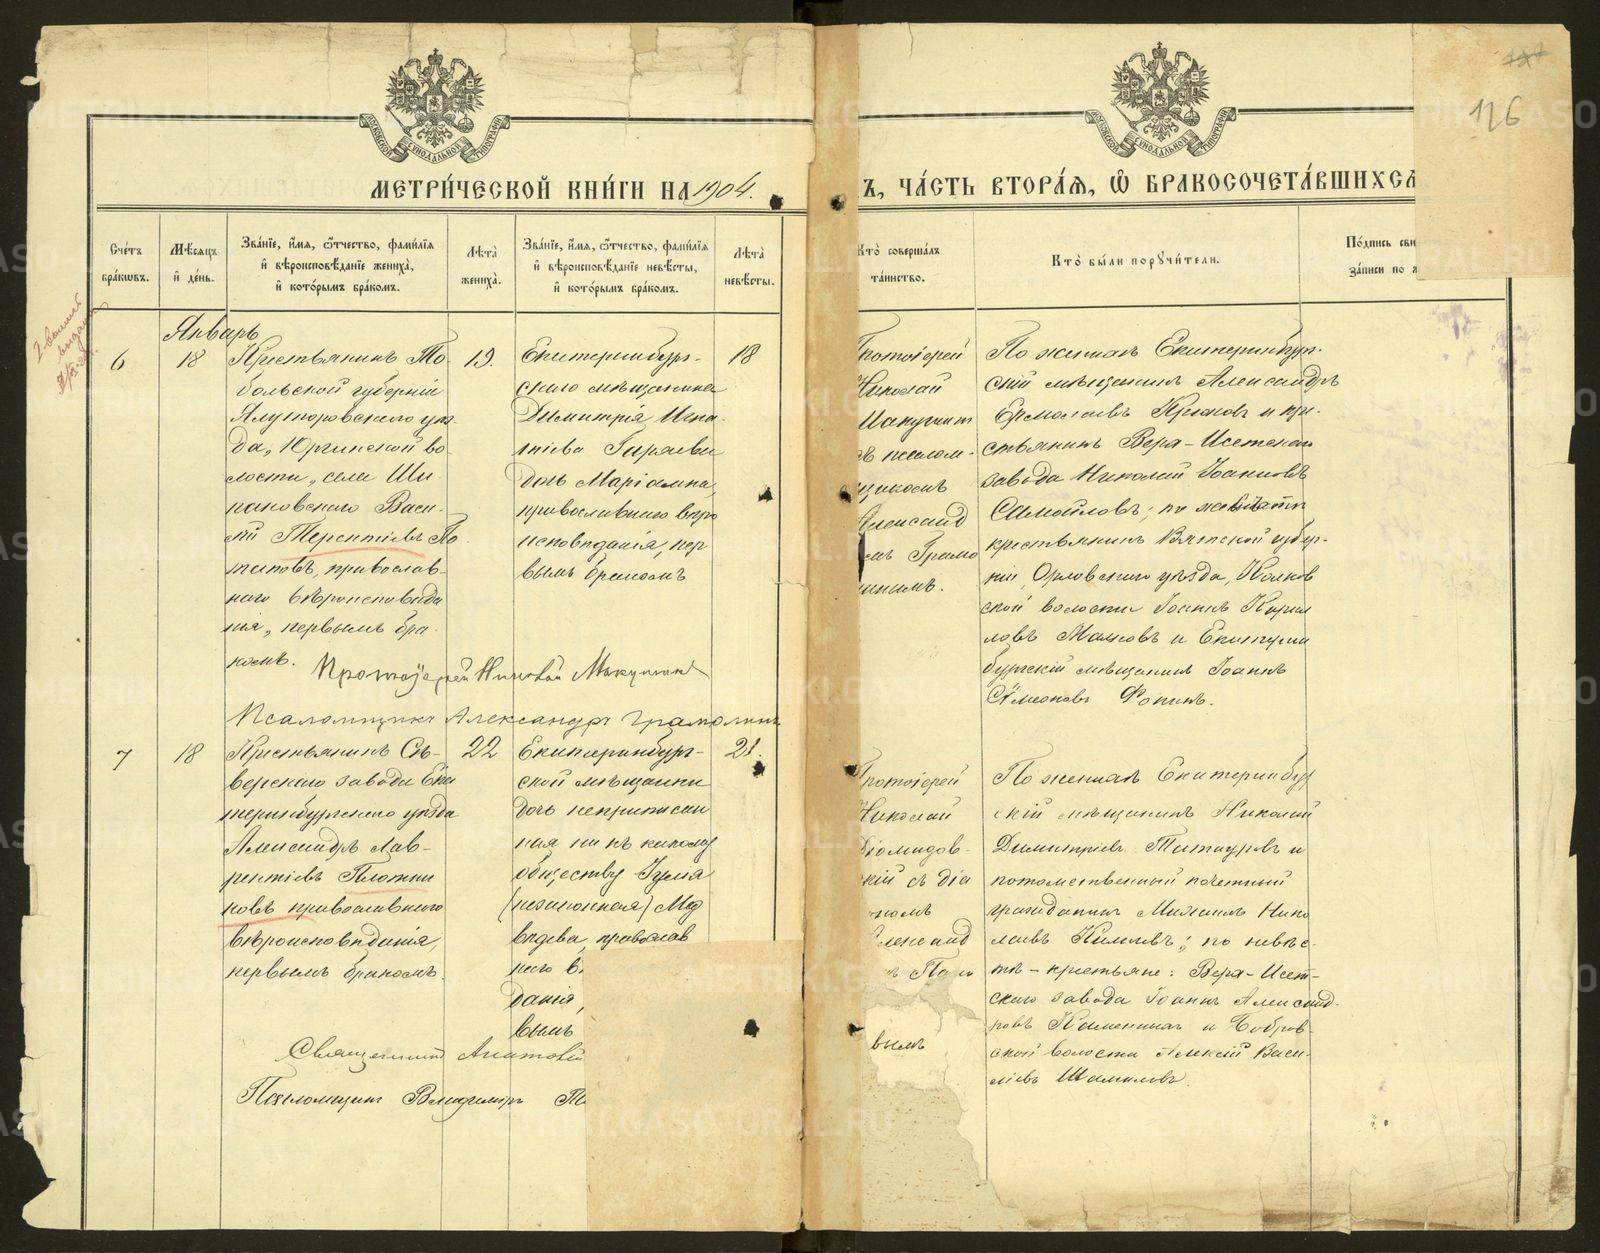 МЕТРИ́ЧЕСКОЙ КНИ́ГИ НА 1904.
Ъ, ЧА́СТЬ ВТОРА́Я, Ѿ БРАКОСОЧЕТА́ВШИХСѦ
126
МОСКОВСКОЙ СѴНОДАЛЬНОЙ ТИПОГРАФІИ
МОСКОВСКОЙ СѴНОДАЛЬНОЙ ТИПОГРАФІИ
Счéтъ бра́кωвъ.
Мѣ́сяцъ и҆ де́нь.
Зва́нїе, и҆́мя, ѻ҆́тчество, фами́лїя и҆ вѣроисповѣ́данїе жениха̀, и҆ кото́рымъ бра́комъ.
Лѣта̀ жениха̀.
Зва́нїе, и҆́мя, ѻ҆́тчество, фами́лїя и҆ вѣроисповѣ́данїе невѣ́сты, и҆ кото́рымъ бра́комъ.
Лѣта̀ невѣ́сты.
Кто̀ соверша́лъ та́инство.
Кто̀ бы́ли порꙋчи́тели.
По́дпись сви
за́писи по
Январь
6
18
Крестьянинъ То-
больской губерніи
Ялуторовскаго уѣз-
да, Юргинской во-
лости, села Ши-
паковскаго Васи-
лій Терентіевъ По-
таповъ, православ-
наго вѣроисповѣда
нія, первымъ бра-
комъ.
19.
Екатеринбург-
скаго мѣщанина
Димитрія Игна-
тіева Гаряева
дочь Маріамна,
православнаго вѣро
исповѣданія, пер
вымъ бракомъ
18
Протоіерей
Николай
с псалом-
щикомъ
Александ
ромъ Грамо
линымъ.
По женихѣ Екатеринбург-
скій мѣщанинъ Александръ
Ермолаевъ Крюковъ и кре-
стьянинъ Верх-Исетскаго
завода Николай Іоанновъ
Самойловъ; по невѣстѣ
крестьянинъ Вятской губер-
ніи, Орловскаго уѣзда,
ской волости Іоаннъ Кирил
ловъ Махновъ и Екатерин
бургскій мѣщанинъ Іоаннъ
Сѵмеоновъ Фокинъ.
Протоіерей Николай
Псаломщикъ Александръ Грамолинъ
7
18
Крестьянинъ Сѣ-
верскаго завода Ека
теринбургскаго уѣзда
Александръ Лав-
рентіевъ Плотни
ковъ православнаго
вѣроисповѣданія,
первымъ бракомъ.
22
Екатеринбург-
ской мѣщанки
дочь неприписан
ная ни къ какому
обществу Іулія
(незаконная) Мед
вѣдева, православ
наго в
данія,
вымъ
21.
Протоіерей
Николай
Діомидов-
скій съ діа
кономъ
Александ
вымъ
По женихѣ Екатеринбур
скій мѣщанинъ Николай
Димитріевъ и
потомственный почетный
гражданинъ Михаилъ Нико
лаевъ; по невѣс-
тѣ - крестьяне: Верх-Исет-
скаго завода Іоаннъ Александ-
ровъ и Бобров-
ской волости Алексій Васи-
ліевъ Шамаловъ.
Священникъ Анатолій
Псаломщикъ Владиміръ
METRIKI.GASO-URAL.RU